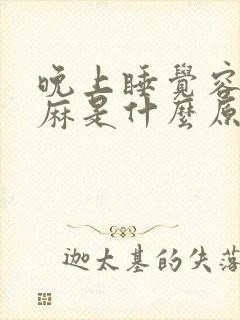 晚上睡覺容
麻是什麼原
迦太基的失落